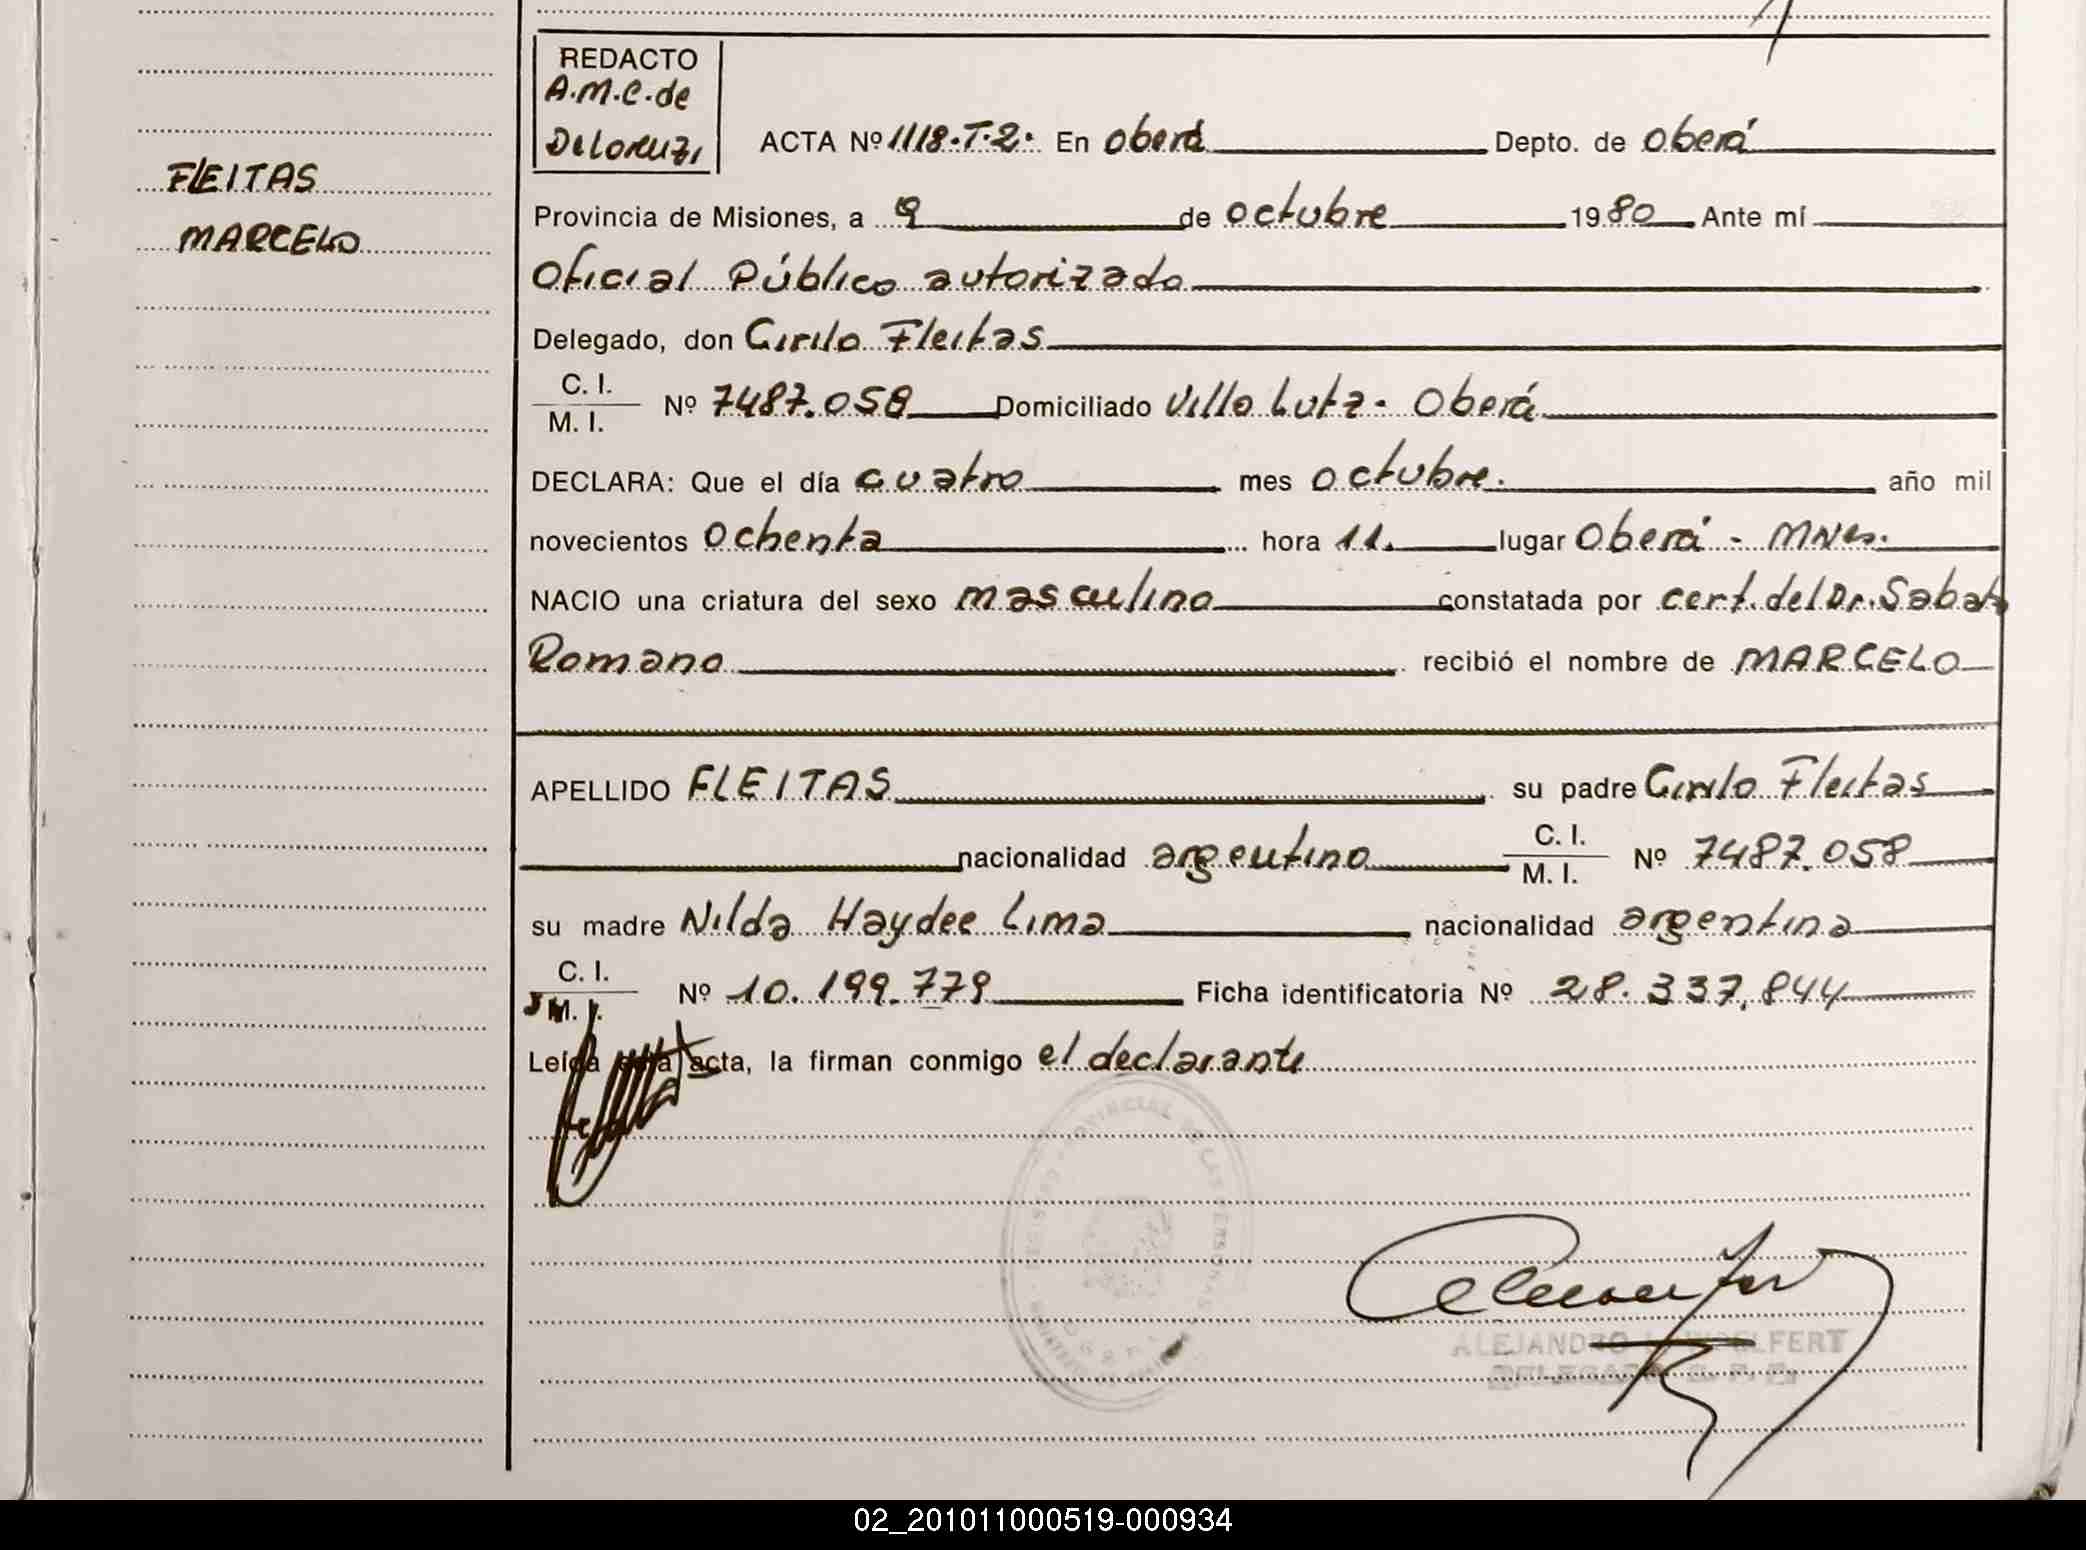 REDACTO
A.M.C. de
DeLorenzi
ACTA Nº 1118.T.2. En Oberá Depto. de Oberá
FLEITAS
MARCELO
Provincia de Misiones, a 9 de octubre 1980 Ante mí
Oficial Público autorizado
Delegado, don Cirilo Fleitas
C. I.
M. I. Nº 7487.058 Domiciliado Villa Lutz - Oberá
DECLARA: Que el día cuatro mes octubre. año mil
novecientos ochenta hora 11. lugar Oberá - Mnes.
NACIO una criatura del sexo masculino constatada por cert. del Dr. Sabat
Romano recibió el nombre de MARCELO
APELLIDO FLEITAS su padre Cirilo Fleitas
nacionalidad argentino C. I.
M. I. Nº 7487.058
su madre Nilda Haydee Lima nacionalidad argentina
C. I.
M. I. Nº 10.199.779 Ficha identificatoria Nº 28.337.844
Leída esta acta, la firman conmigo el declarante
REGISTRO PROVINCIAL DE LAS PERSONAS
ALEJANDRO
DELEGADO
02_201011000519-000934